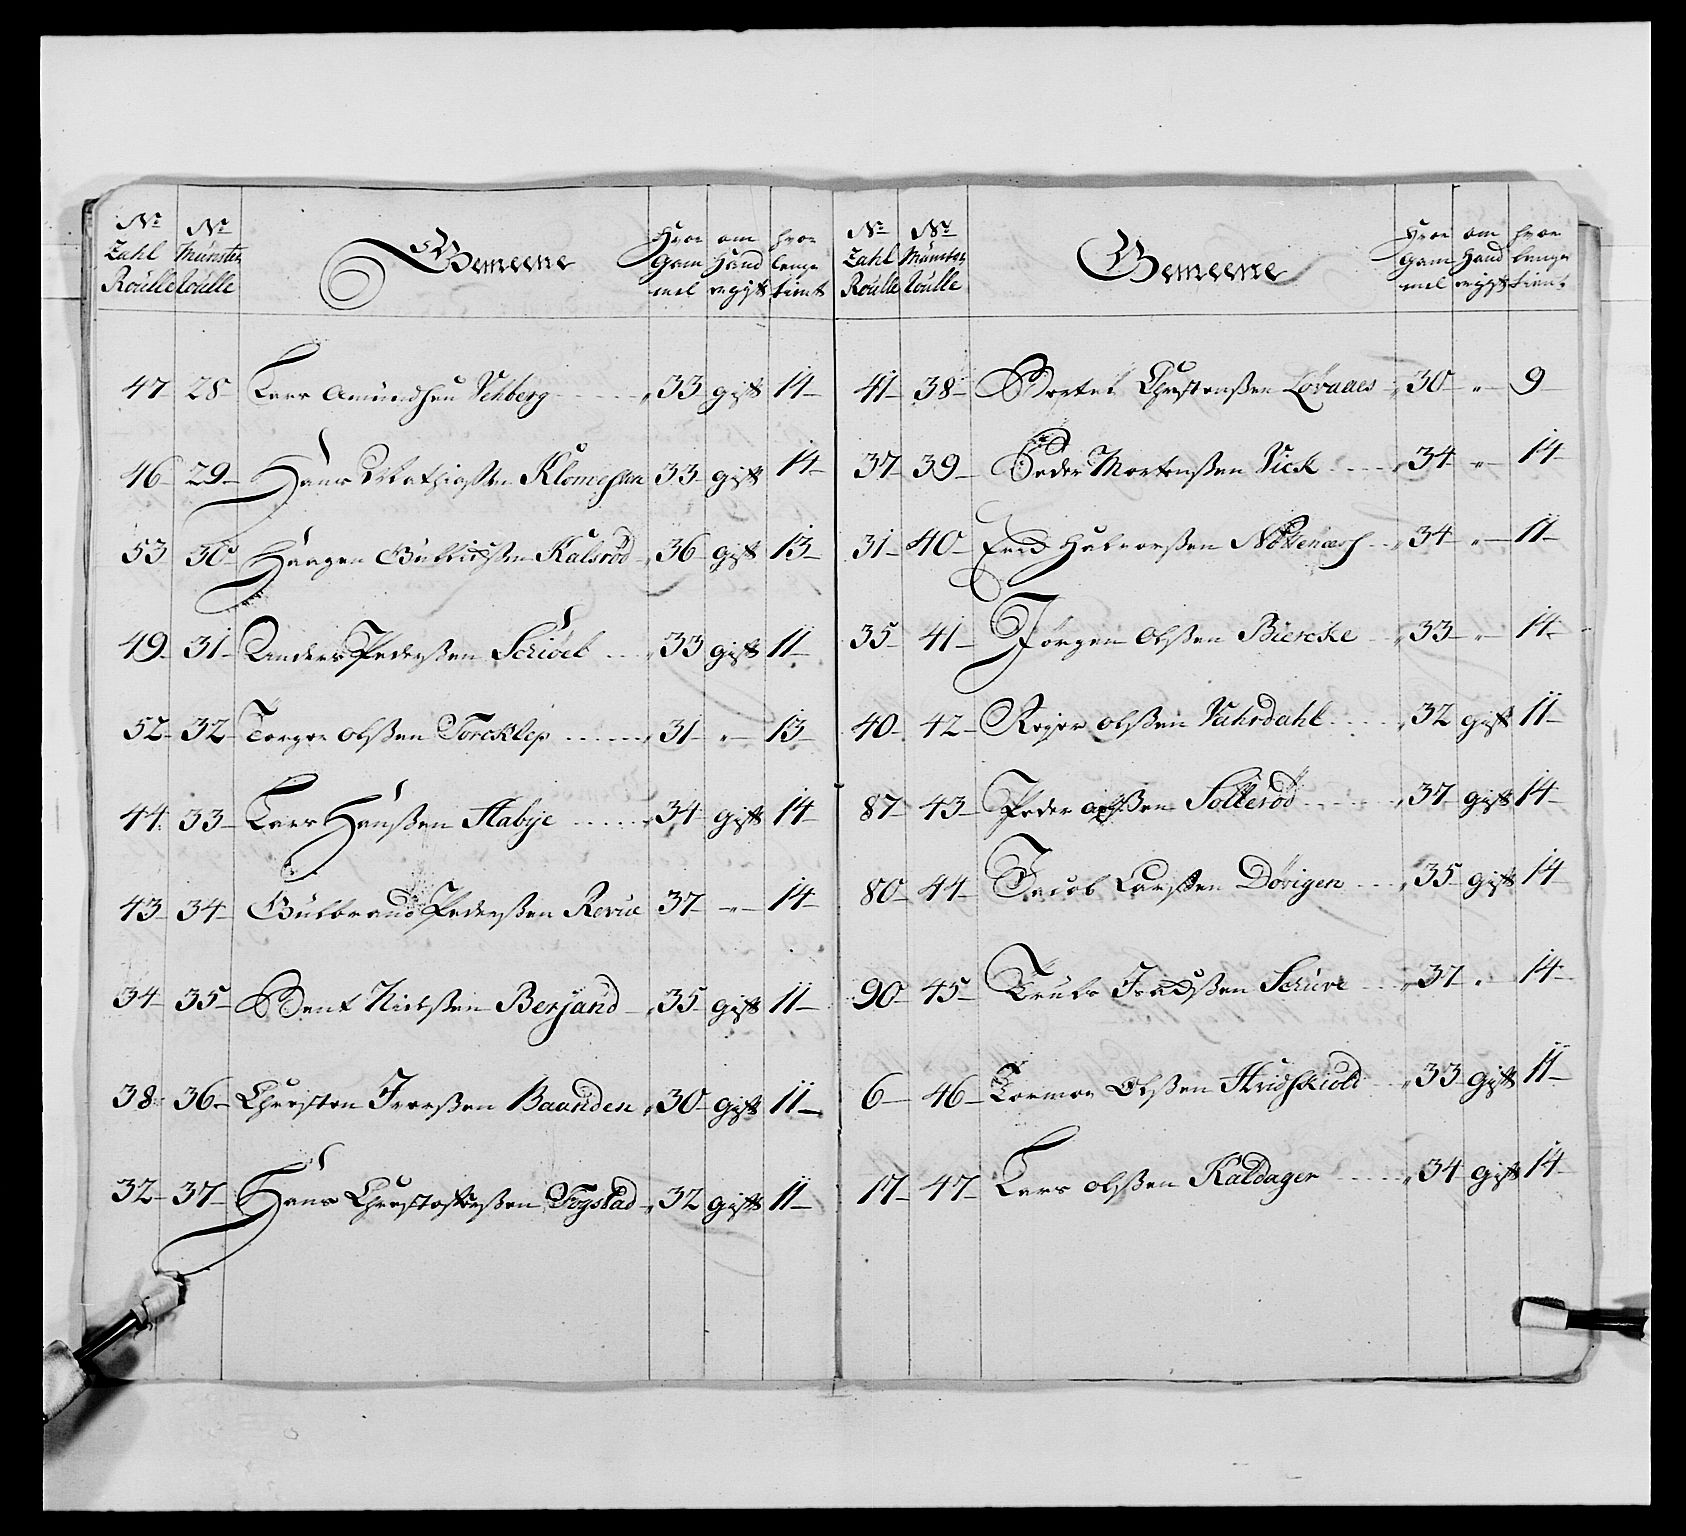 No Zahl Roulle | No Munster Roulle | Gemeene | Hvor Gammel | om Hand er gift | hvor lenge tient
47 28 Lars Amundsen Vehberg 33 gift 14
46 29 Hans Mathiasßen 33 gift 14
53 30 Haagen Kalsröd 36 gift 13
49 31 Anders Pedersßen Schiöel 33 gift 11
52 32 Torger Olsßen Torcklep 31 " 13
44 33 Lars Hansßen Habye 34 gift 14
43 34 Gulbrand Pedersßen Revue 37 " 14
34 35 Bent Nielsßen Berjand 35 gift 11
38 36 Christen Iversßen Baanden 30 gift 11
32 37 Hans Christophersßen Fogstad 32 gift 11
No Zahl Roulle | No Munster Roulle | Gemeene | Hvor Gammel | om Hand er gift | hvor lenge tient
41 38 Christensßen Lövaaes 30 " 9
37 39 Peder Mortensßen Vick 34 " 14
31 40 Halvorsßen 34 " 11
35 41 Jörgen Olsßen Biercke 33 " 14
40 42 Olsßen Vahrdahl 32 gift 11
87 43 Peder Olsßen Solleröd 37 gift 14
80 44 Jacob Larsßen Dövigen 35 gift 14
90 45 Truls Schirve 37 " 14
6 46 Tormoe Olsßen Hvidskiold 33 gift 11
17 47 Lars Olsßen Kaldager 34 gift 14